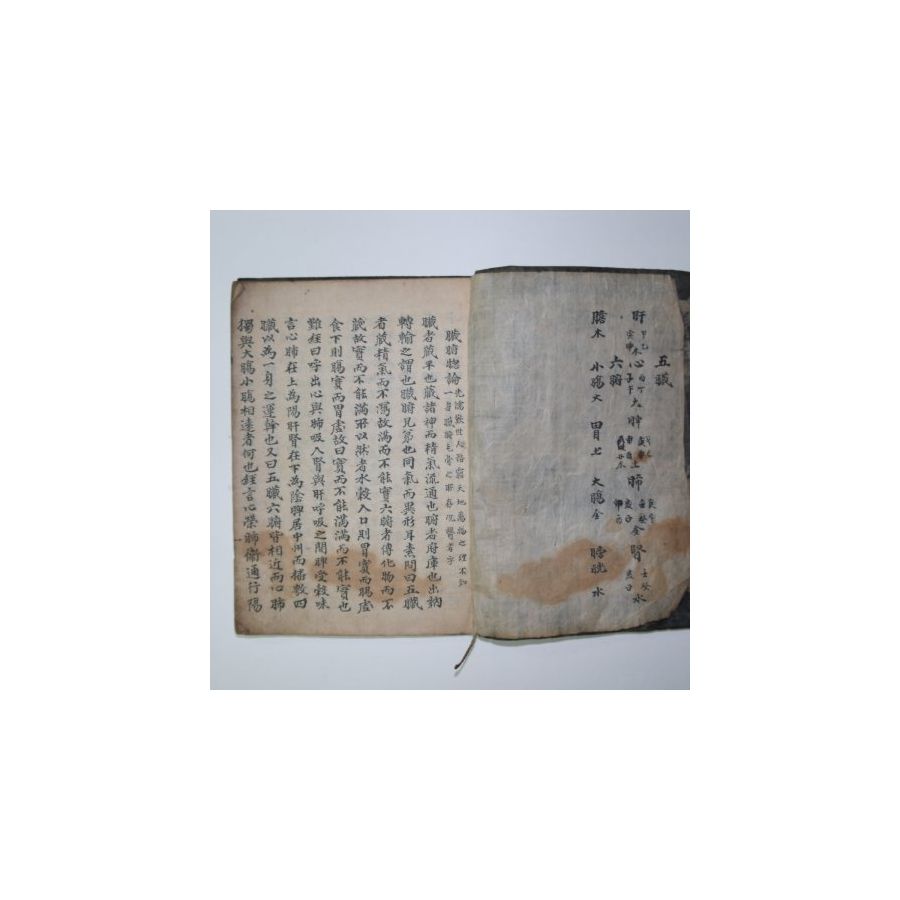 五臟
肝 甲乙 木 心 丙丁 火 脾 土 肺 金 腎 壬癸 水
六腑
膽木 小腸火 胃土 大腸金 膀胱水
臟腑總論
一身臟腑毛骨之所存況醫者乎
臟者藏平也藏諸神而精氣流通也腑者府庫也出納
轉輸之謂也臟腑兄弟也同氣而異形耳素問曰五臟
者藏精氣而不瀉故滿而不能實六腑者傳化物而不
藏故實而不能滿所以然者水穀入口則胃實而腸虛
食下則腸實而胃虛故曰實而不能滿滿而不能實也
難經曰呼出心與肺吸入腎與肝呼吸之間脾受穀味
言心肺在上為陽肝腎在下為陰脾居中州而播敷四
臟以為一身之運幹也又曰五臟六腑皆相近而心肺
獨與大腸小腸相遠者何也經言心榮肺衛通行陽